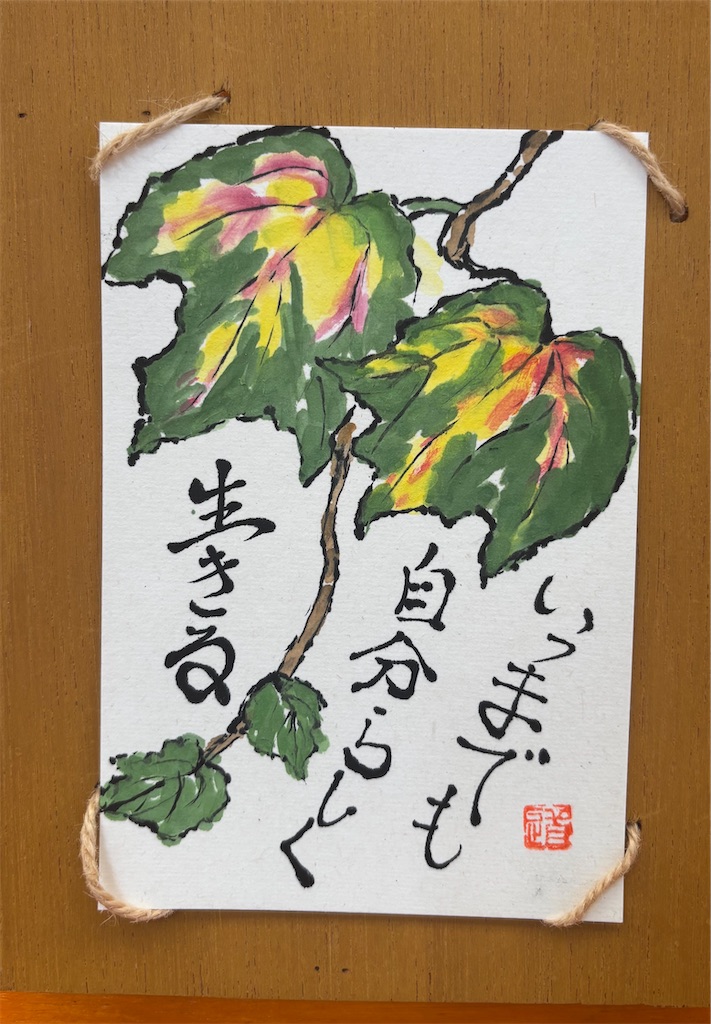 いつまでも
自分らしく
生きる